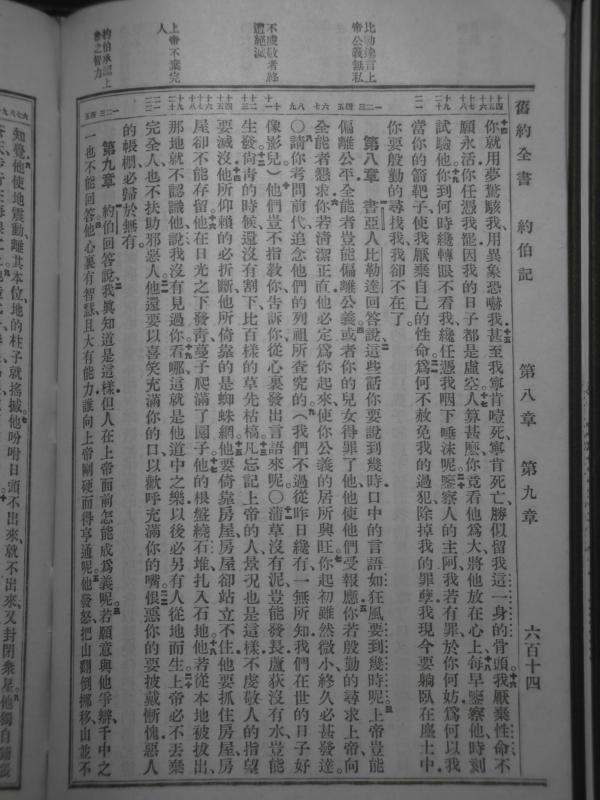 舊約全書 約伯記 第八章 第九章 六百十四
你就用夢驚駭我、用異象恐嚇我、甚至我寧肯噎死、寧肯死亡、勝似留我這一身的骨頭。我厭棄性命、不
願永活、你任憑我罷、因我的日子都是虛空。人算甚麼、你竟看他爲大、將他放在心上、每早鑒察他、時刻
試驗他。你到何時纔轉眼不看我、纔任憑我咽下唾沫呢。鑒察人的主阿、我若有罪、於你何妨、爲何以我
當你的箭靶子、使我厭棄自己的性命。爲何不赦免我的過犯、除掉我的罪孽、我現今要躺臥在塵土中、
你要殷勤的尋找我、我卻不在了。
第八章 書亞人比勒達回答說、這些話你要說到幾時、口中的言語如狂風要到幾時呢。上帝豈能
偏離公平、全能者豈能偏離公義。或者你的兒女得罪了他、他使他們受報應。你若殷勤的尋求上帝、向
全能者懇求。你若清潔正直、他必定爲你起來、使你公義的居所興旺。你起初雖然微小、終久必甚發達。
〇請你考問前代、追念他們的列祖所查究的。(我們不過從昨日纔有、一無所知、我們在世的日子好
像影兒)他們豈不指教你、告訴你、從心裏發出言語來呢。〇蒲草沒有泥、豈能發長、蘆荻沒有水、豈能
生發。尙靑的時候、還沒有割下、比百樣的草先枯槁。凡忘記上帝的人、景況也是這樣、不虔敬人的指望
要滅沒。他所仰賴的必折斷、他所倚靠的是蜘蛛網。他要倚靠房屋、房屋卻站立不住、他要抓住房屋、房
屋卻不能存留。他在日光之下發靑、蔓子爬滿了園子。他的根盤繞石堆、扎入石地。他若從本地被拔出、
那地就不認識他、說、我沒有見過你。看哪、這就是他道中之樂、以後必另有人從地而生。上帝必不丟棄
完全人、也不扶助邪惡人。他還要以喜笑充滿你的口、以歡呼充滿你的嘴。恨惡你的要披戴慚愧、惡人
的帳棚必歸於無有。
第九章 約伯回答說、我眞知道是這樣、但人在上帝面前怎能成爲義呢。若願意與他爭辯、千中之
一也不能回答。他心裏有智慧、且大有能力、誰向上帝剛硬而得亨通呢。他發怒、把山翻倒挪移、山並不
比勒達言上
帝公義無私
不虔敬者終
遭絕滅
上帝不棄完
人
約伯承認上
帝之智力
知覺。他使地震動、離其本位、地的柱子就搖撼。他吩咐日頭不出來、就不出來、又封閉衆星。他獨自鋪張